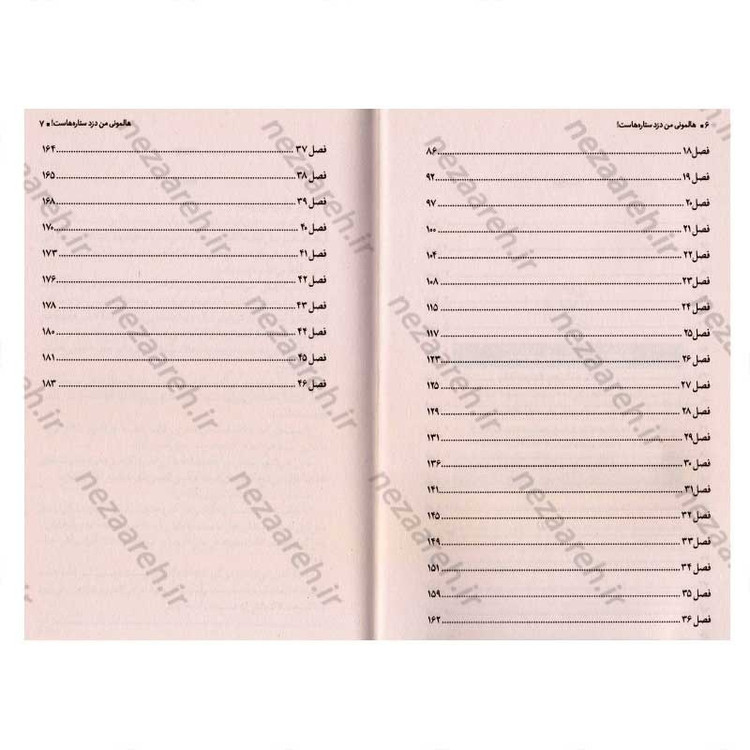 ۶ ■ هالمونی من دزد ستاره‌هاست!
فصل ۱۸ ........ ۸۶
فصل ۱۹ ........ ۹۲
فصل ۲۰ ........ ۹۷
فصل ۲۱ ........ ۱۰۰
فصل ۲۲ ........ ۱۰۴
فصل ۲۳ ........ ۱۰۸
فصل ۲۴ ........ ۱۱۵
فصل ۲۵ ........ ۱۱۷
فصل ۲۶ ........ ۱۲۳
فصل ۲۷ ........ ۱۲۵
فصل ۲۸ ........ ۱۲۹
فصل ۲۹ ........ ۱۳۱
فصل ۳۰ ........ ۱۳۶
فصل ۳۱ ........ ۱۴۱
فصل ۳۲ ........ ۱۴۵
فصل ۳۳ ........ ۱۴۹
فصل ۳۴ ........ ۱۵۱
فصل ۳۵ ........ ۱۵۹
فصل ۳۶ ........ ۱۶۲
هالمونی من دزد ستاره‌هاست! ■ ۷
فصل ۳۷ ........ ۱۶۴
فصل ۳۸ ........ ۱۶۵
فصل ۳۹ ........ ۱۶۸
فصل ۴۰ ........ ۱۷۰
فصل ۴۱ ........ ۱۷۳
فصل ۴۲ ........ ۱۷۶
فصل ۴۳ ........ ۱۷۸
فصل ۴۴ ........ ۱۸۰
فصل ۴۵ ........ ۱۸۱
فصل ۴۶ ........ ۱۸۳
nezaareh.ir